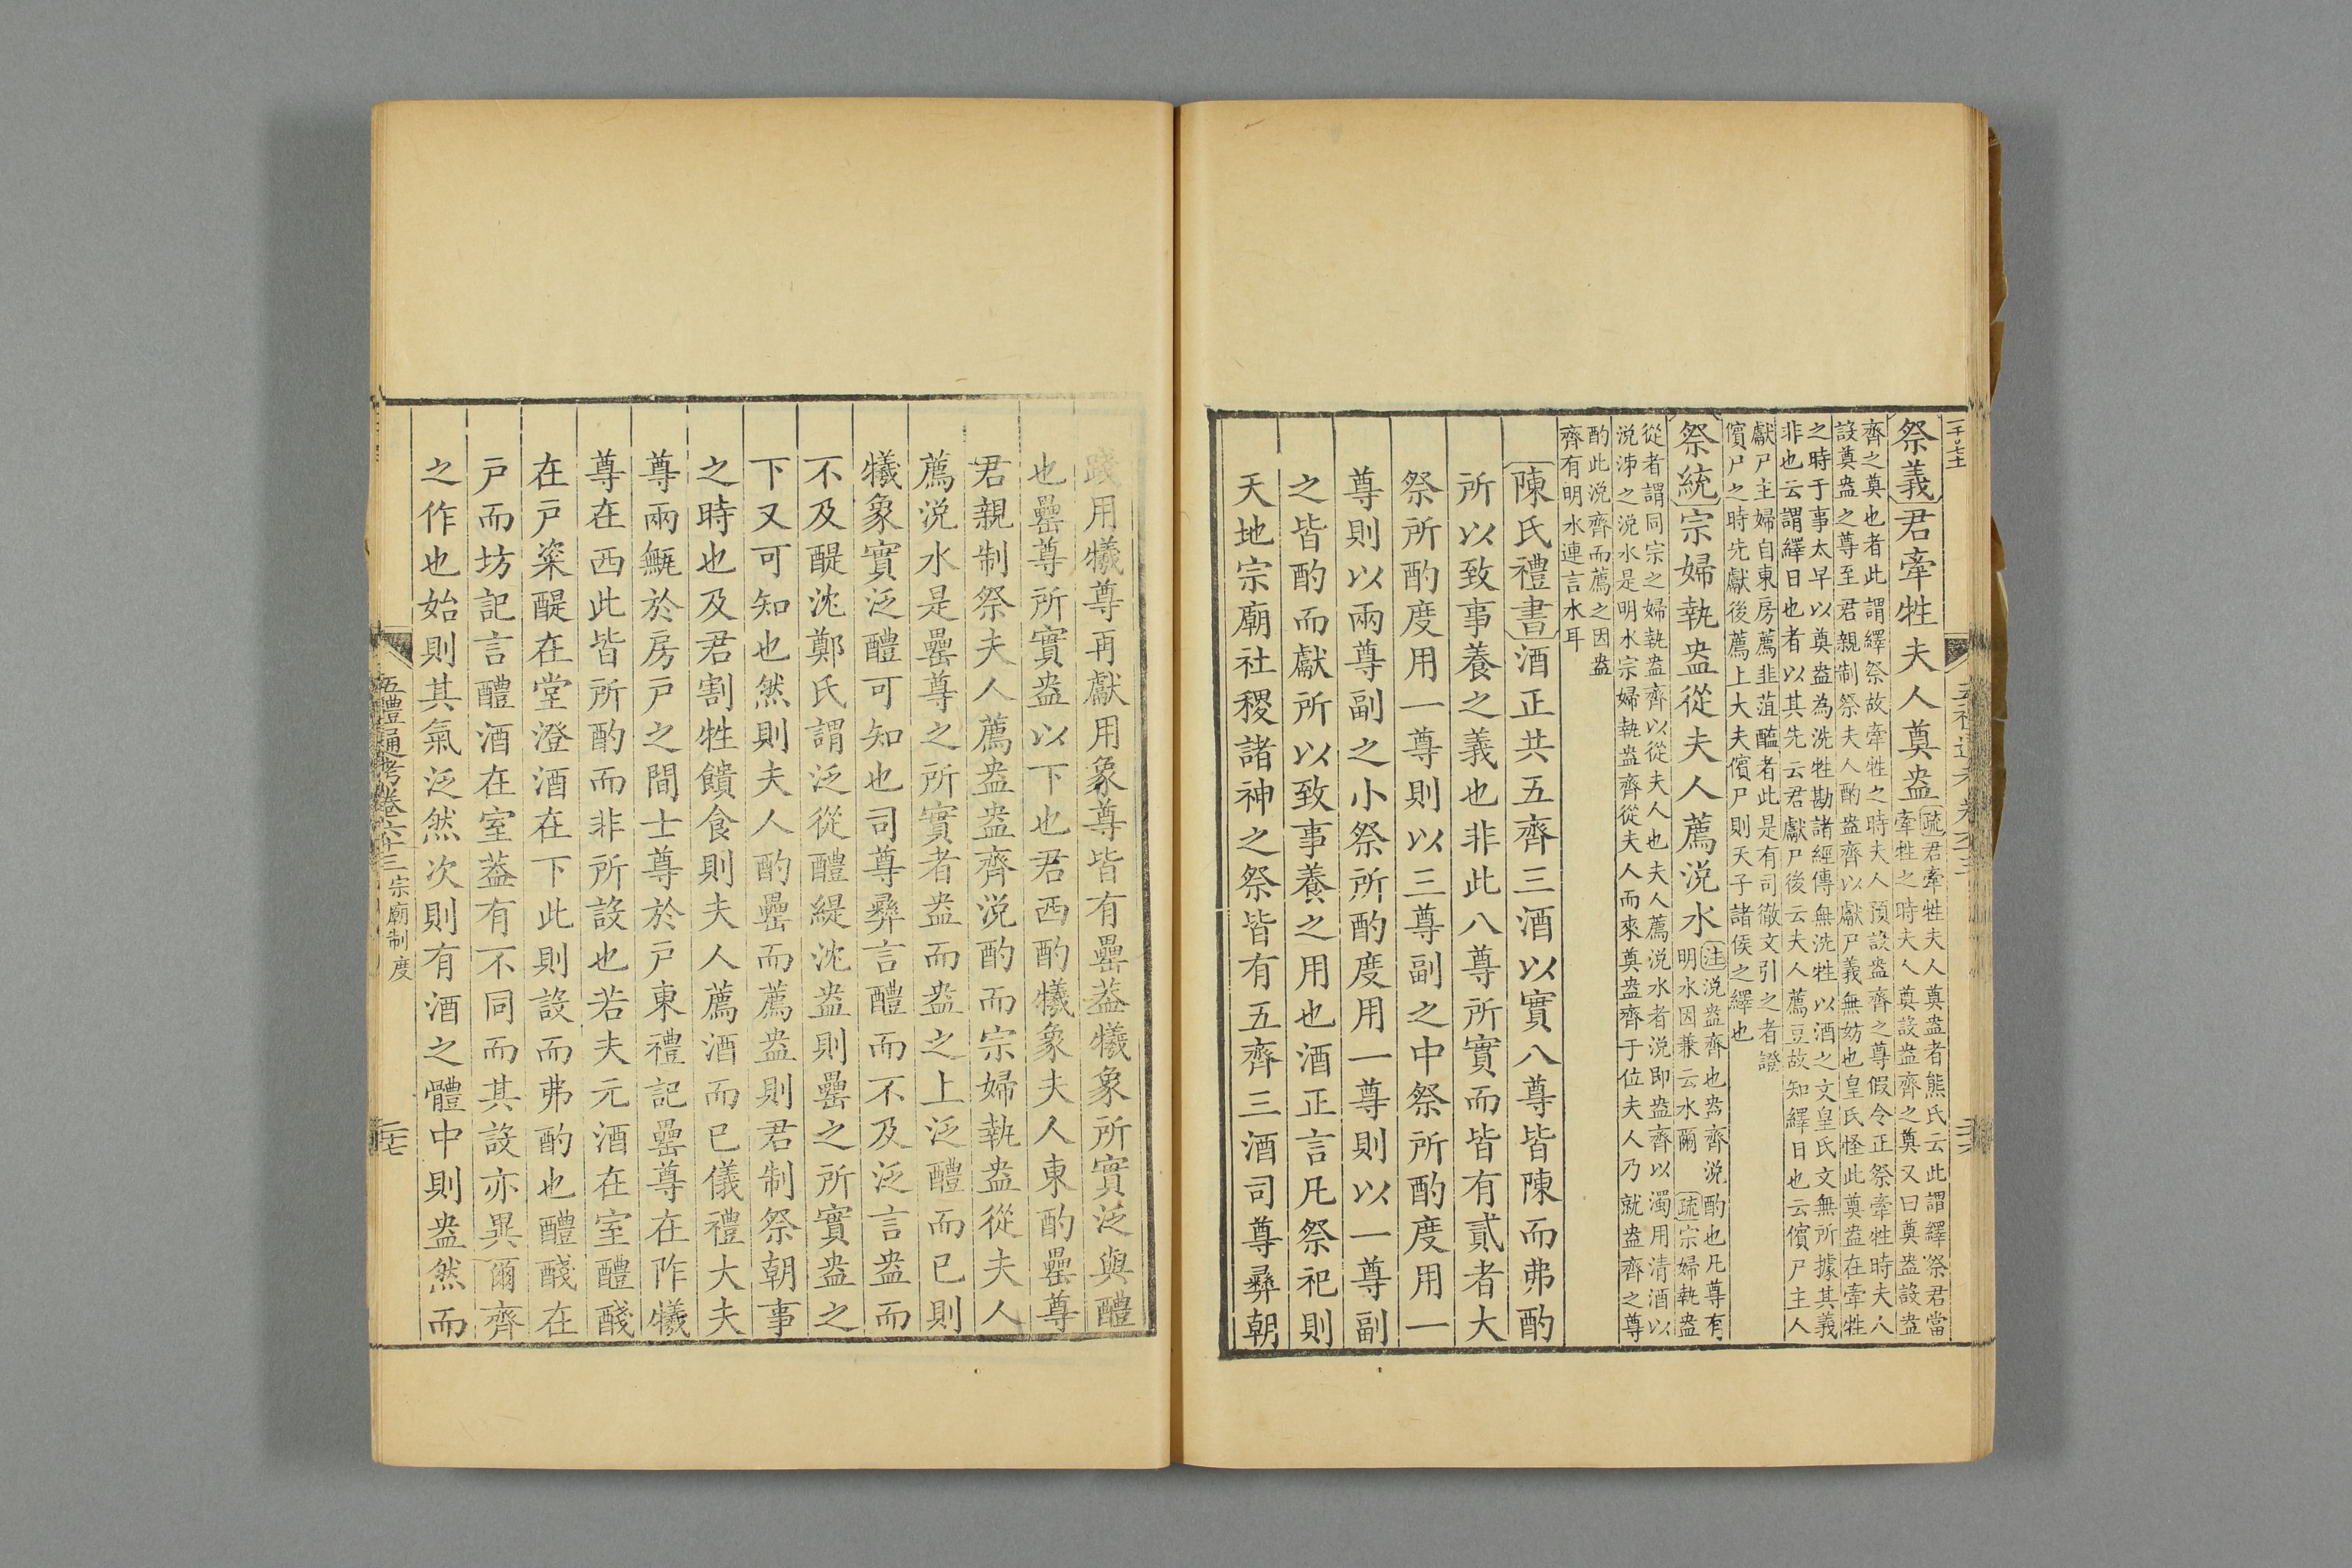 祭義君牽牲夫人奠盎疏君牽牲夫人奠盎者熊氏云此謂繹祭君當
牽牲之時夫人奠設盎齊之奠又曰奠盎設盎
齊之奠也者此謂繹祭故牽牲之時夫人預設盎齊之尊假令正祭牽牲時夫人
設奠盎之尊至君親制祭夫人酌盎齊以獻尸義無妨也皇氏怪此奠盎在牽牲
之時于事太早以奠盎為洗牲勘諸經傳無洗牲以酒之文皇氏文無所據其義
非也云謂繹日也者以其先云君獻尸後云夫人薦豆故知繹日也云儐尸主人
獻尸主婦自東房薦韭菹醢者此是有司徹文引之者證
儐尸之時先獻後薦上大夫儐尸則天子諸侯之繹也
祭統宗婦執盎從夫人薦涚水注涚盎齊也盎齊涚酌也凡尊有
明水因兼云水爾　疏宗婦執盎
從者謂同宗之婦執盎齊以從夫人也夫人薦涚水者涚即盎齊以濁用清酒以
涚沛之涚水是明水宗婦執盎齊從夫人而來奠盎齊于位夫人乃就盎齊之尊
酌此涚齊而薦之因盎
齊有明水連言水耳
陳氏禮書酒正共五齊三酒以實八尊皆陳而弗酌
所以致事養之義也非此八尊所實而皆有貳者大
祭所酌度用一尊則以三尊副之中祭所酌度用一
尊則以兩尊副之小祭所酌度用一尊則以一尊副
之皆酌而獻所以致事養之用也酒正言凡祭祀則
天地宗廟社稷諸神之祭皆有五齊三酒司尊彝朝
踐用犧尊再獻用象尊皆有罍蓋犧象所實泛與醴
也罍尊所實盎以下也君西酌犧象夫人東酌罍尊
君親制祭夫人薦盎盎齊涚酌而宗婦執盎從夫人
薦涚水是罍尊之所實者盎而盎之上泛醴而已則
犧象實泛醴可知也司尊彝言醴而不及泛言盎而
不及醍沈鄭氏謂泛從醴緹沈盎則罍之所實盎之
下又可知也然則夫人酌罍而薦盎則君制祭朝事
之時也及君割牲饋食則夫人薦酒而已儀禮大夫
尊兩甒於房戶之間士尊於戶東禮記罍尊在阼犧
尊在西此皆所酌而非所設也若夫元酒在室醴醆
在戶粢醍在堂澄酒在下此則設而弗酌也醴醆在
戶而坊記言醴酒在室蓋有不同而其設亦異爾齊
之作也始則其氣泛然次則有酒之體中則盎然而
五禮通考卷六十三　宗廟制度　二七